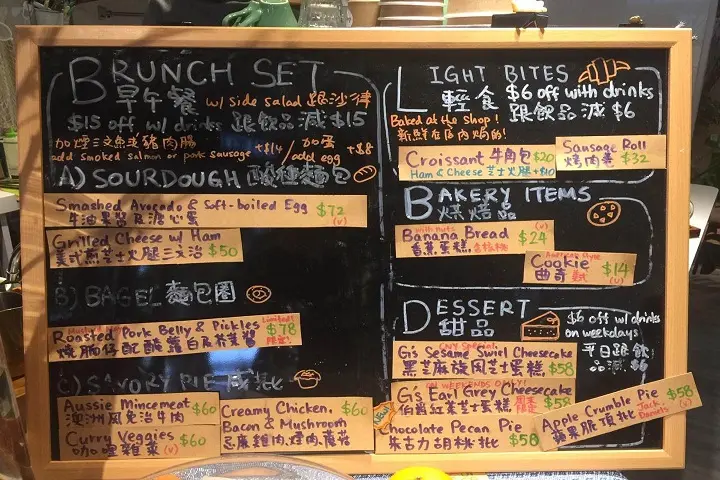 BRUNCH SET
早午餐 w/ side salad 跟沙律
$15 off w/ drinks 跟飲品減$15
加煙三文魚或豬肉腸 +$14 / 加蛋 +$8
add smoked salmon or pork sausage / add egg
A) SOURDOUGH 酸種麵包
Smashed Avocado & Soft-boiled Egg $72
牛油果醬及溏心蛋 (v)
Grilled Cheese w/ Ham
美式煎芝士火腿三文治 $50
B) BAGEL 麵包圈
Roasted Pork Belly & Pickles Limited! $78
燒腩仔配酸蘿白及芥菜醬 限定!
C) SAVORY PIE 咸批
Aussie Mincemeat $60
澳洲風免治牛肉
Curry Veggies $60
咖喱雜菜 (v)
Creamy Chicken, $60
Bacon & Mushroom
忌廉雞肉,煙肉,蘑菇
LIGHT BITES
輕食 $6 off with drinks
跟飲品減 $6
Baked at the shop!
新鮮在店內焗的!
Croissant 牛角包 $20
Ham & Cheese 芝士火腿 +$10
Sausage Roll
烤肉卷 $32
BAKERY ITEMS
烘焙品
With Nuts (v)
Banana Bread $24
香蕉蛋糕 含核桃
American Style
Cookie $14
曲奇 (v)
DESSERT
甜品
$6 off w/ drinks
on weekdays
平日跟飲
品減 $6
ONLY SPECIAL!
G's Sesame Swirl Cheesecake
黑芝麻旋風芝士蛋糕 $58
ON WEEKENDS ONLY!
G's Earl Grey Cheesecake
伯爵紅茶芝士蛋糕 $58
Chocolate Pecan Pie
朱古力胡桃批 $58
Apple Crumble Pie $58
蘋果脆頂批 Jack Daniel's (v)